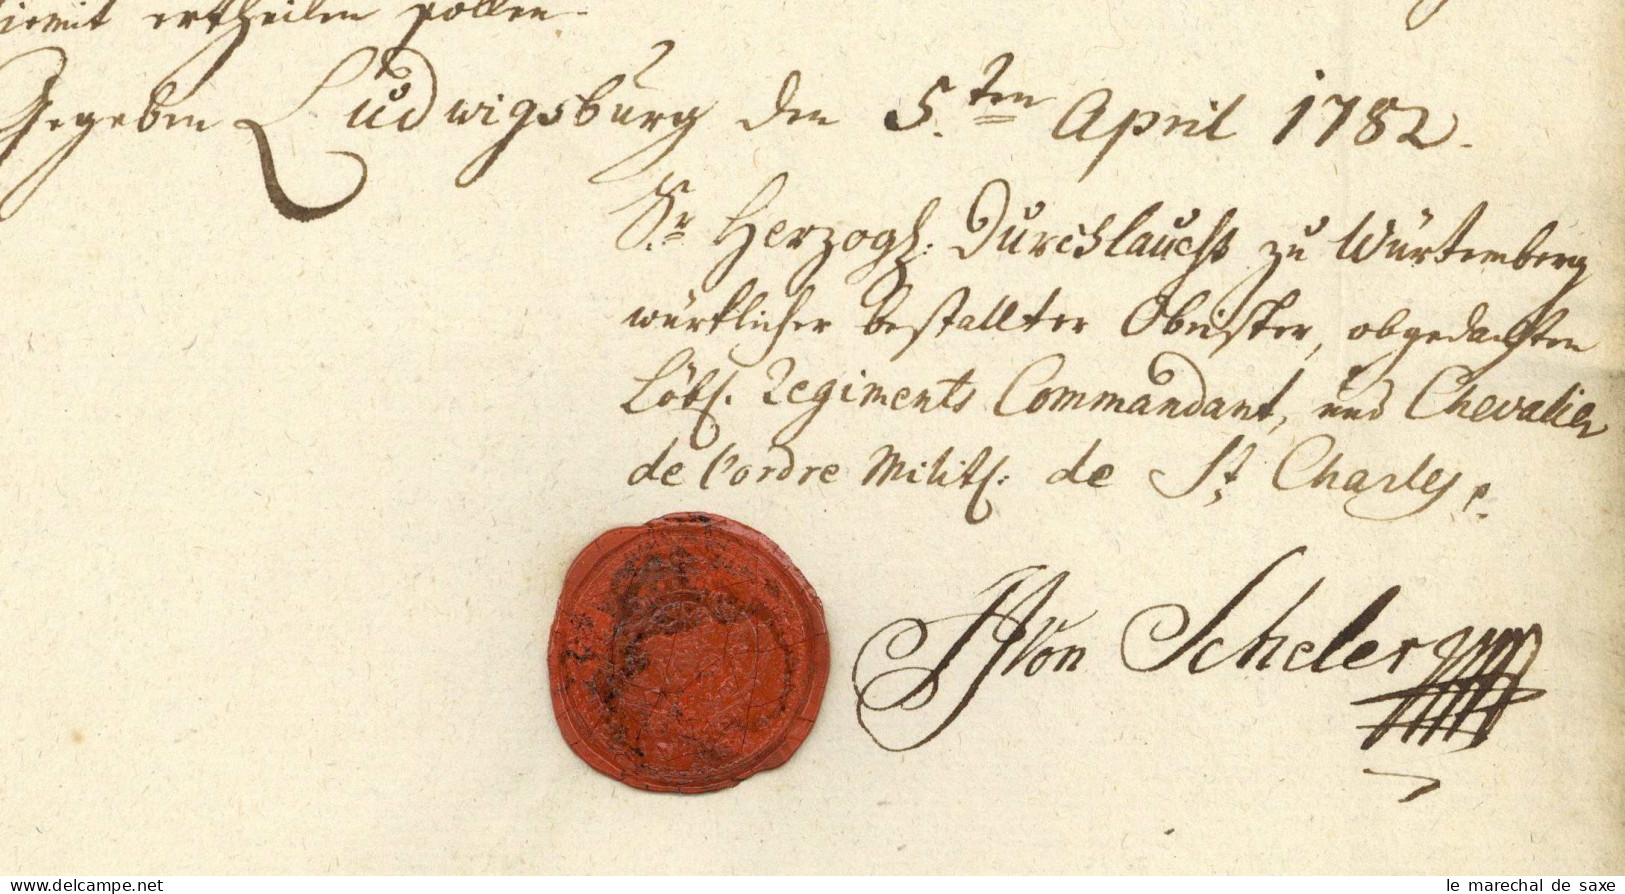 hiemit ertheilen sollen.
Gegeben Ludwigsburg den 5.ten April 1782.
Sr. Herzogl. Durchlaucht zu Würtemberg
würklicher bestallter Obrister, obgedachten
Löbl. Regiments Commandant, und Chevalier
de l'ordre Milit. de St. Charles
von Scheler
www.delcampe.net
le marechal de saxe